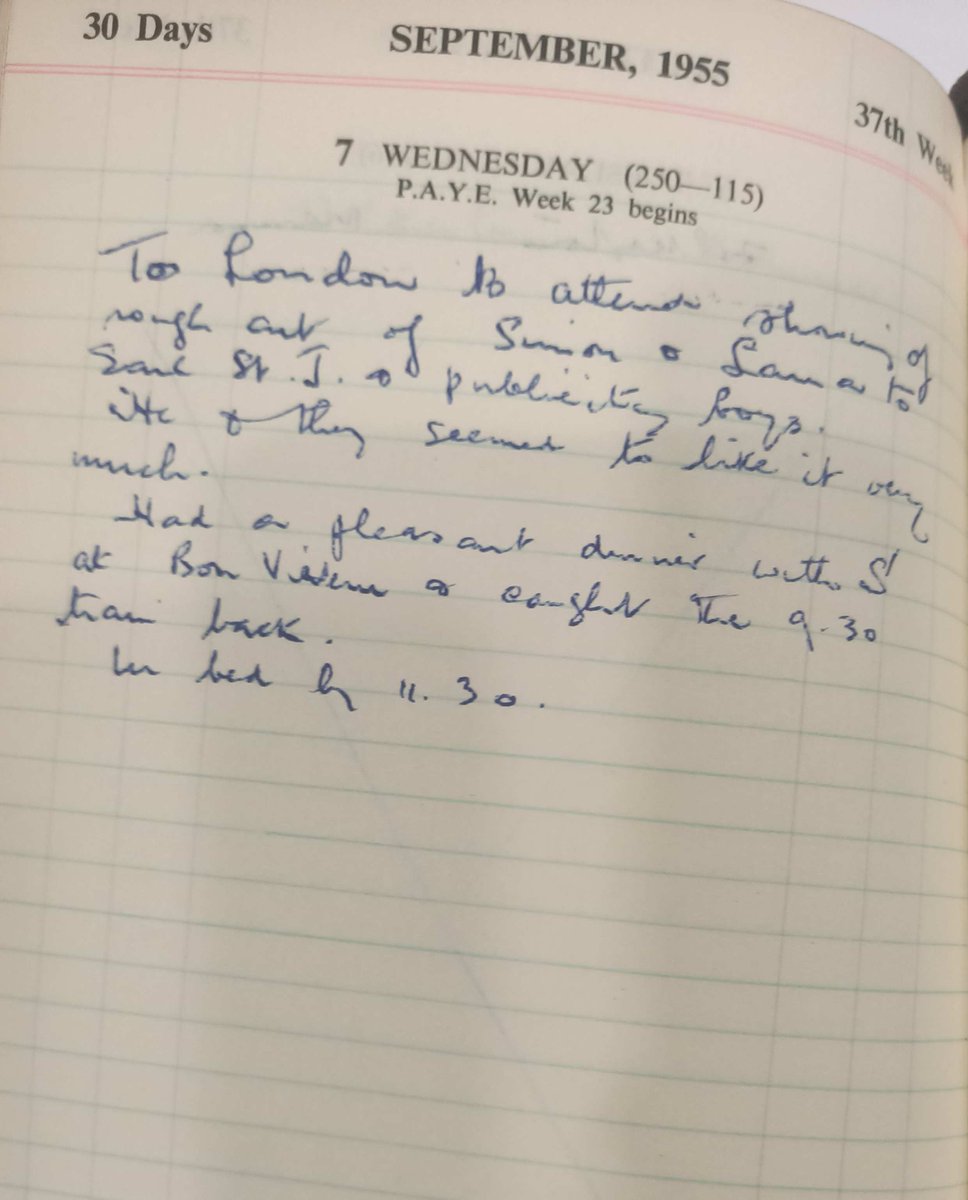 30 Days
SEPTEMBER, 1955
37th Week
7 WEDNESDAY (250—115)
P.A.Y.E. Week 23 begins
To London to attend showing of
rough cut of Simon & Laura to
Earl St. J. & publicity boys.
He & they seemed to like it very
much.
Had a pleasant dinner with S
at Bon Viveur & caught the 9.30
train back.
In bed by 11.30.